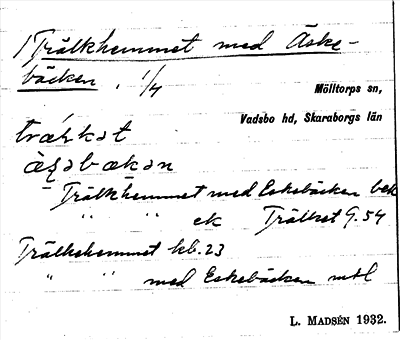 Trälkhemmet med Äske-
bäcken, 1/4
Mölltorps sn,
Vadsbo hd, Skaraborgs län
trælkət
Trälkhemmet med Eskebäcken bek
" " ek Trälket G. 54
Trälkehemmet kb. 23
" " med Eskebäcken mtl
L. MADSÉN 1932.